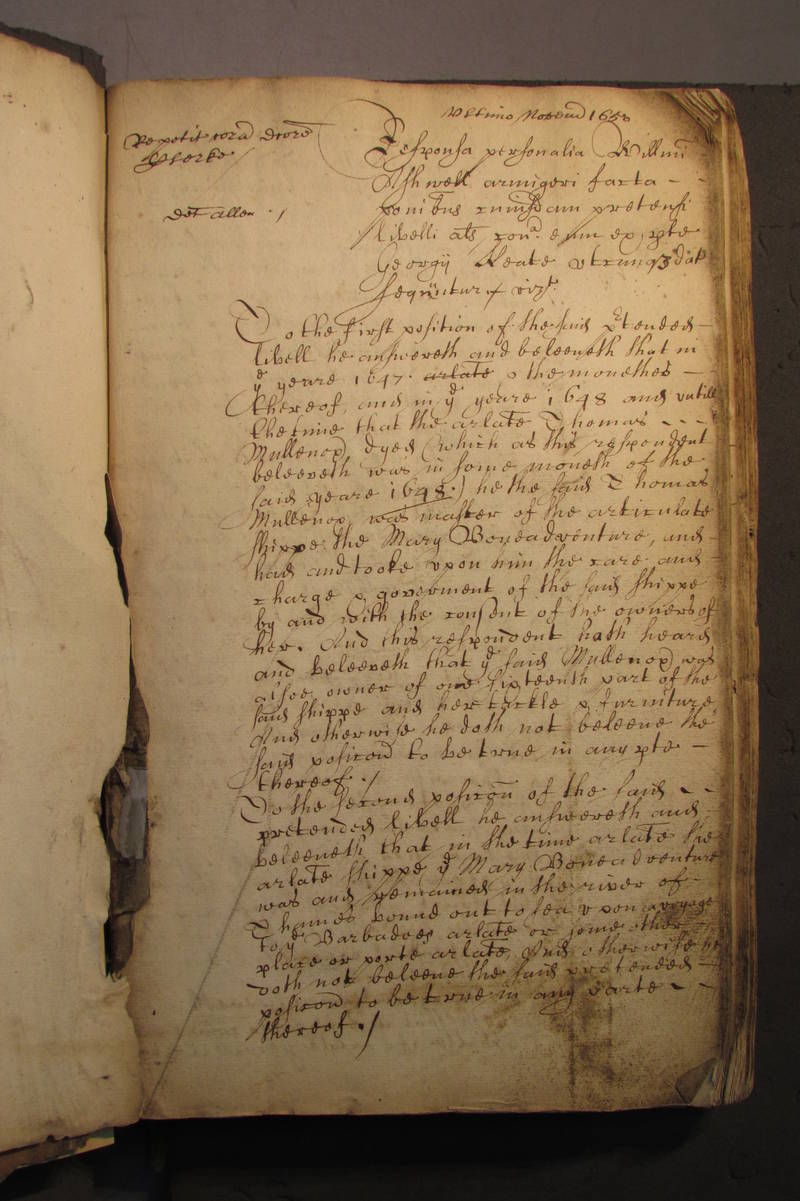 Ultimo Novemb 1650
Repetit cora Doctore
Clerke
Responsa personalia Willimi
Ashwell armigeri facta - -
dt Allen ./
positionibus cuiusdam pretensi
libelli als con. eum ex pte
Georgij Keate utcunq dat
sequuntur vizt.
To the first position of the said prtended -
libell he answereth and beleeveth that in
ye yeare 1647. arlate & the monethes -
thereof, and in ye yeare 1648 and untill
the time that the arlate Thomas - - -
Mullenox dyed (which as this respondent
beleeveth was in some moneth of the
said yeare 1648.) he the said Thomas
Mullenox was master of the articulate
shippe the Mary Boneadventure, and
had and tooke upon him the care and
charge & goverment of the said shippe
by and with the consent of the owners of
her. And this respondent hath heard
and beleeveth that ye said Mullenox was
alsoe owner of one sixteenth part of the
said shippe and her tackle & furniture,
And otherwise he doth not beleeve the
said positcon to be true in any pte -
thereof ./
To the second positcon of the said - -
pretended libell he answereth and -
beleeveth that in the time arlate the
arlate shippe ye Mary Boneadventure
was and remained in the river of -
Thames bound out to sea upon a voyage
to ye Barbadoes arlate or some other -
place or porte arlate, And otherwise he
doth not beleeve the said pretended -
positcon to be true in any parte - -
thereof ./